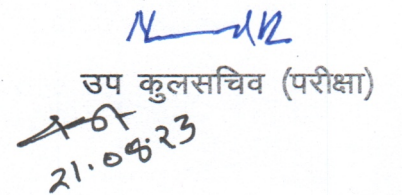 उप कुलसचिव (परीक्षा)
21.08.23